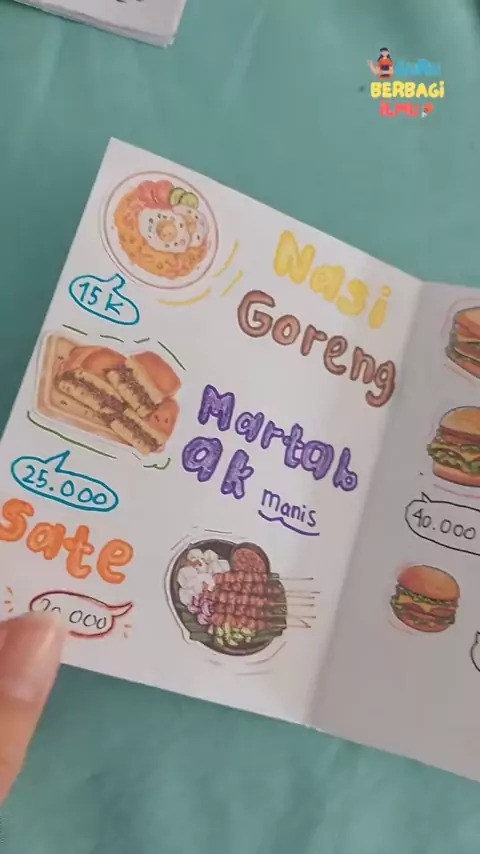 BERBAGI
ILMU
Nasi
Goreng
15K
Martab
ak
manis
25.000
Sate
40.000